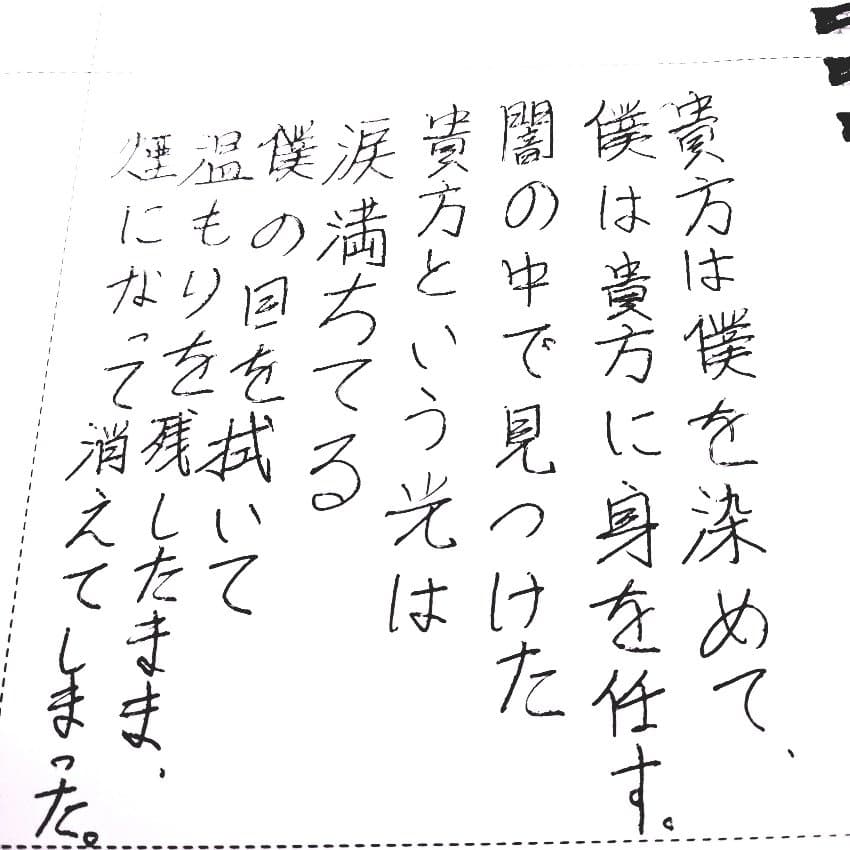 貴方は僕を染めて、
僕は貴方に身を任す。
闇の中で見つけた
貴方という光は
涙満ちてる
僕の目を拭いて
温もりを残したまま、
煙になって消えてしまった。